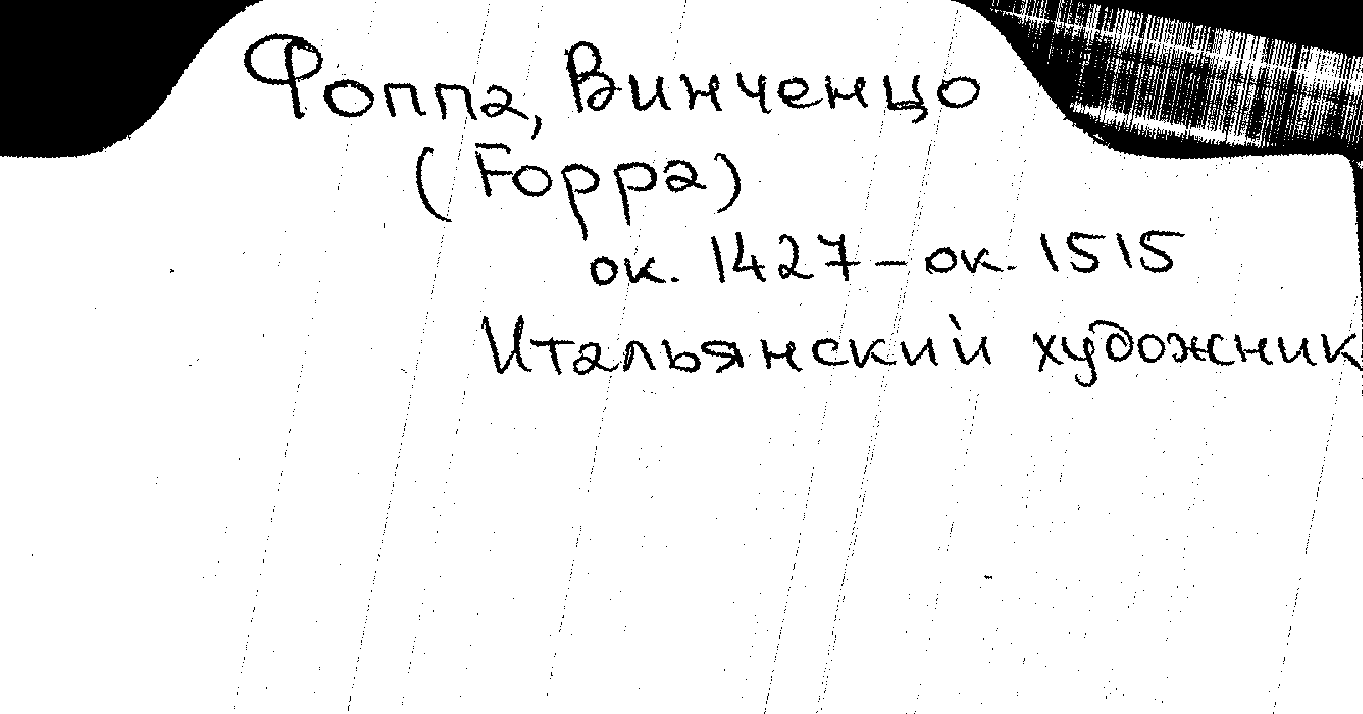 Фоппа, Винченцо
(Foppa)
ок. 1427 – ок. 1515
Итальянский художник